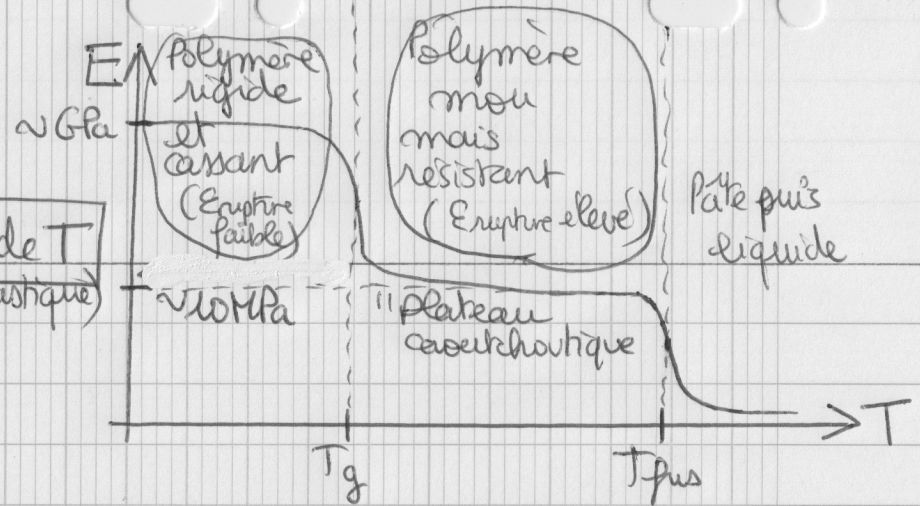 E
~GPa
Polymère
rigide
et
cassant
(Erupture
faible)
Polymère
mou
mais
résistant
(Erupture elevé)
Pâte puis
liquide
de T
astique)
~10MPa
"plateau
caoutchoutique
T
Tg
Tfus